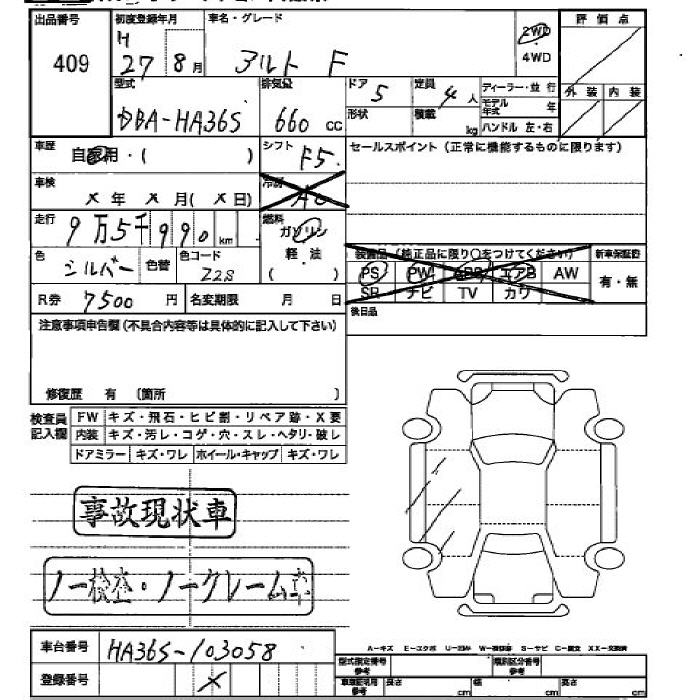 出品番号 初度登録年月 車名・グレード 2WD 評価点
409 H 27 8月 アルト F 4WD
型式 排気量 ドア 5 定員 4人 ディーラー・並行 外装 内装
DBA-HA36S 660 cc 形状 積載 kg モデル年式 年
ハンドル 左・右
車歴 自家用・( ) シフト F5. セールスポイント(正常に機能するものに限ります)
車検 X年 X月(X日) 冷房 AC
走行 9万5千990km 燃料 ガソリン
軽・油
( )
装備品(純正品に限り○をつけてください) 新車保証書
色 シルバー 色替 色コード Z2S PS PW ABS エアB AW 有・無
R券 7500円 名変期限 月 日 SR ナビ TV カワ
注意事項申告欄(不具合内容等は具体的に記入して下さい) 後日品
修復歴 有 〔箇所 〕
検査員記入欄 FW キズ・飛石・ヒビ割・リペア跡・X要
内装 キズ・汚レ・コゲ・穴・スレ・ヘタリ・破レ
ドアミラー キズ・ワレ ホイール・キャップ キズ・ワレ
事故現状車
ノー検査・ノークレーム車
車台番号 HA36S-103058
A-キズ E-エクボ U-凹み W-補修跡 S-サビ C-腐食 XX-交換済
登録番号 X 型式指定番号 参考 類別区分番号 参考
車庫証明用 参考 長さ cm 幅 cm 高さ cm